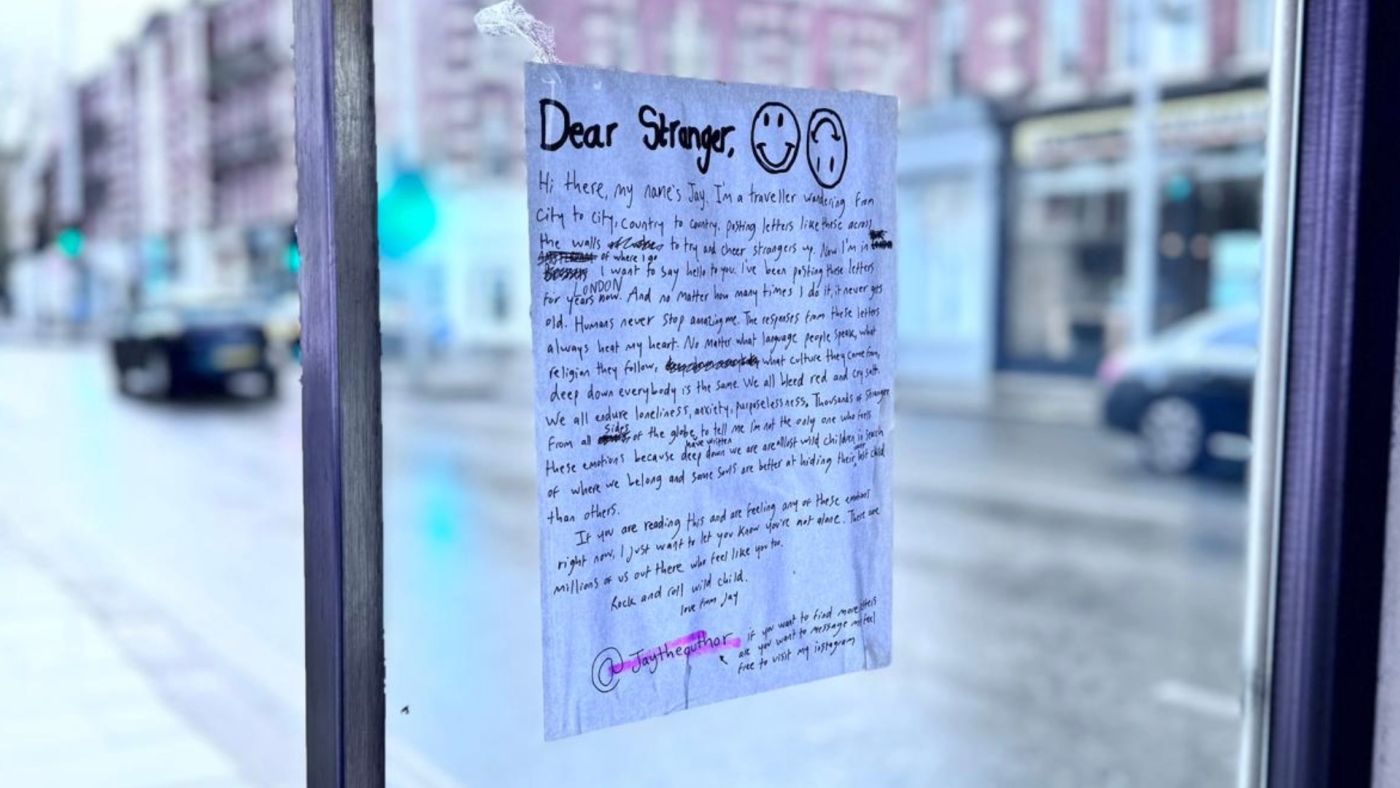 Dear Stranger,
Hi there, my name's Jay. I'm a traveller wandering from
City to city, Country to country, posting letters like these across
the walls to try and cheer strangers up. Now I'm in
of where I go
I want to say hello to you. I've been posting these letters
LONDON
for years now. And no matter how many times I do it, it never gets
old. Humans never stop amazing me. The responses from these letters
always heat my heart. No matter what language people speak, what
religion they follow, what culture they come from,
deep down everybody is the same. We all bleed red and cry salt.
We all endure loneliness, anxiety, purposelessness. Thousands of Stranger
From all sides of the globe to tell me I'm not the only one who feels
have written
these emotions because deep down we are all lost wild children in search
of where we belong and some souls are better at hiding their lost child
than others.
If you are reading this and are feeling any of these emotions
right now, I just want to let you know you're not alone. There are
millions of us out there who feel like you too.
Rock and roll wild child.
love from Jay
@Jaytheauthor
if you want to find more letters
or you want to message me feel
free to visit my instagram